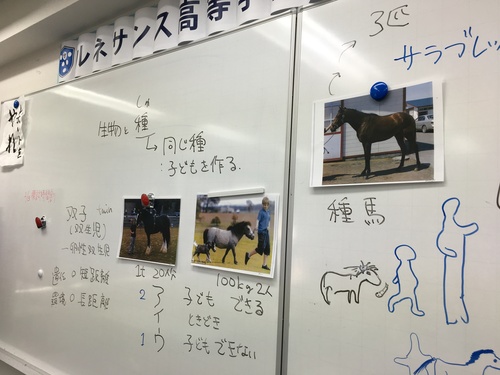 レネサンス高等学
3匹
サラブレッ
しゅ
生物と種
同じ種
:子どもを作る.
種馬
双子 twin
(双生児)
一卵性双生児
遺伝0短距離
環境0長距離
100kg 2人
2 ア 子ども できる
イ ときどき
1 ウ 子ども できない